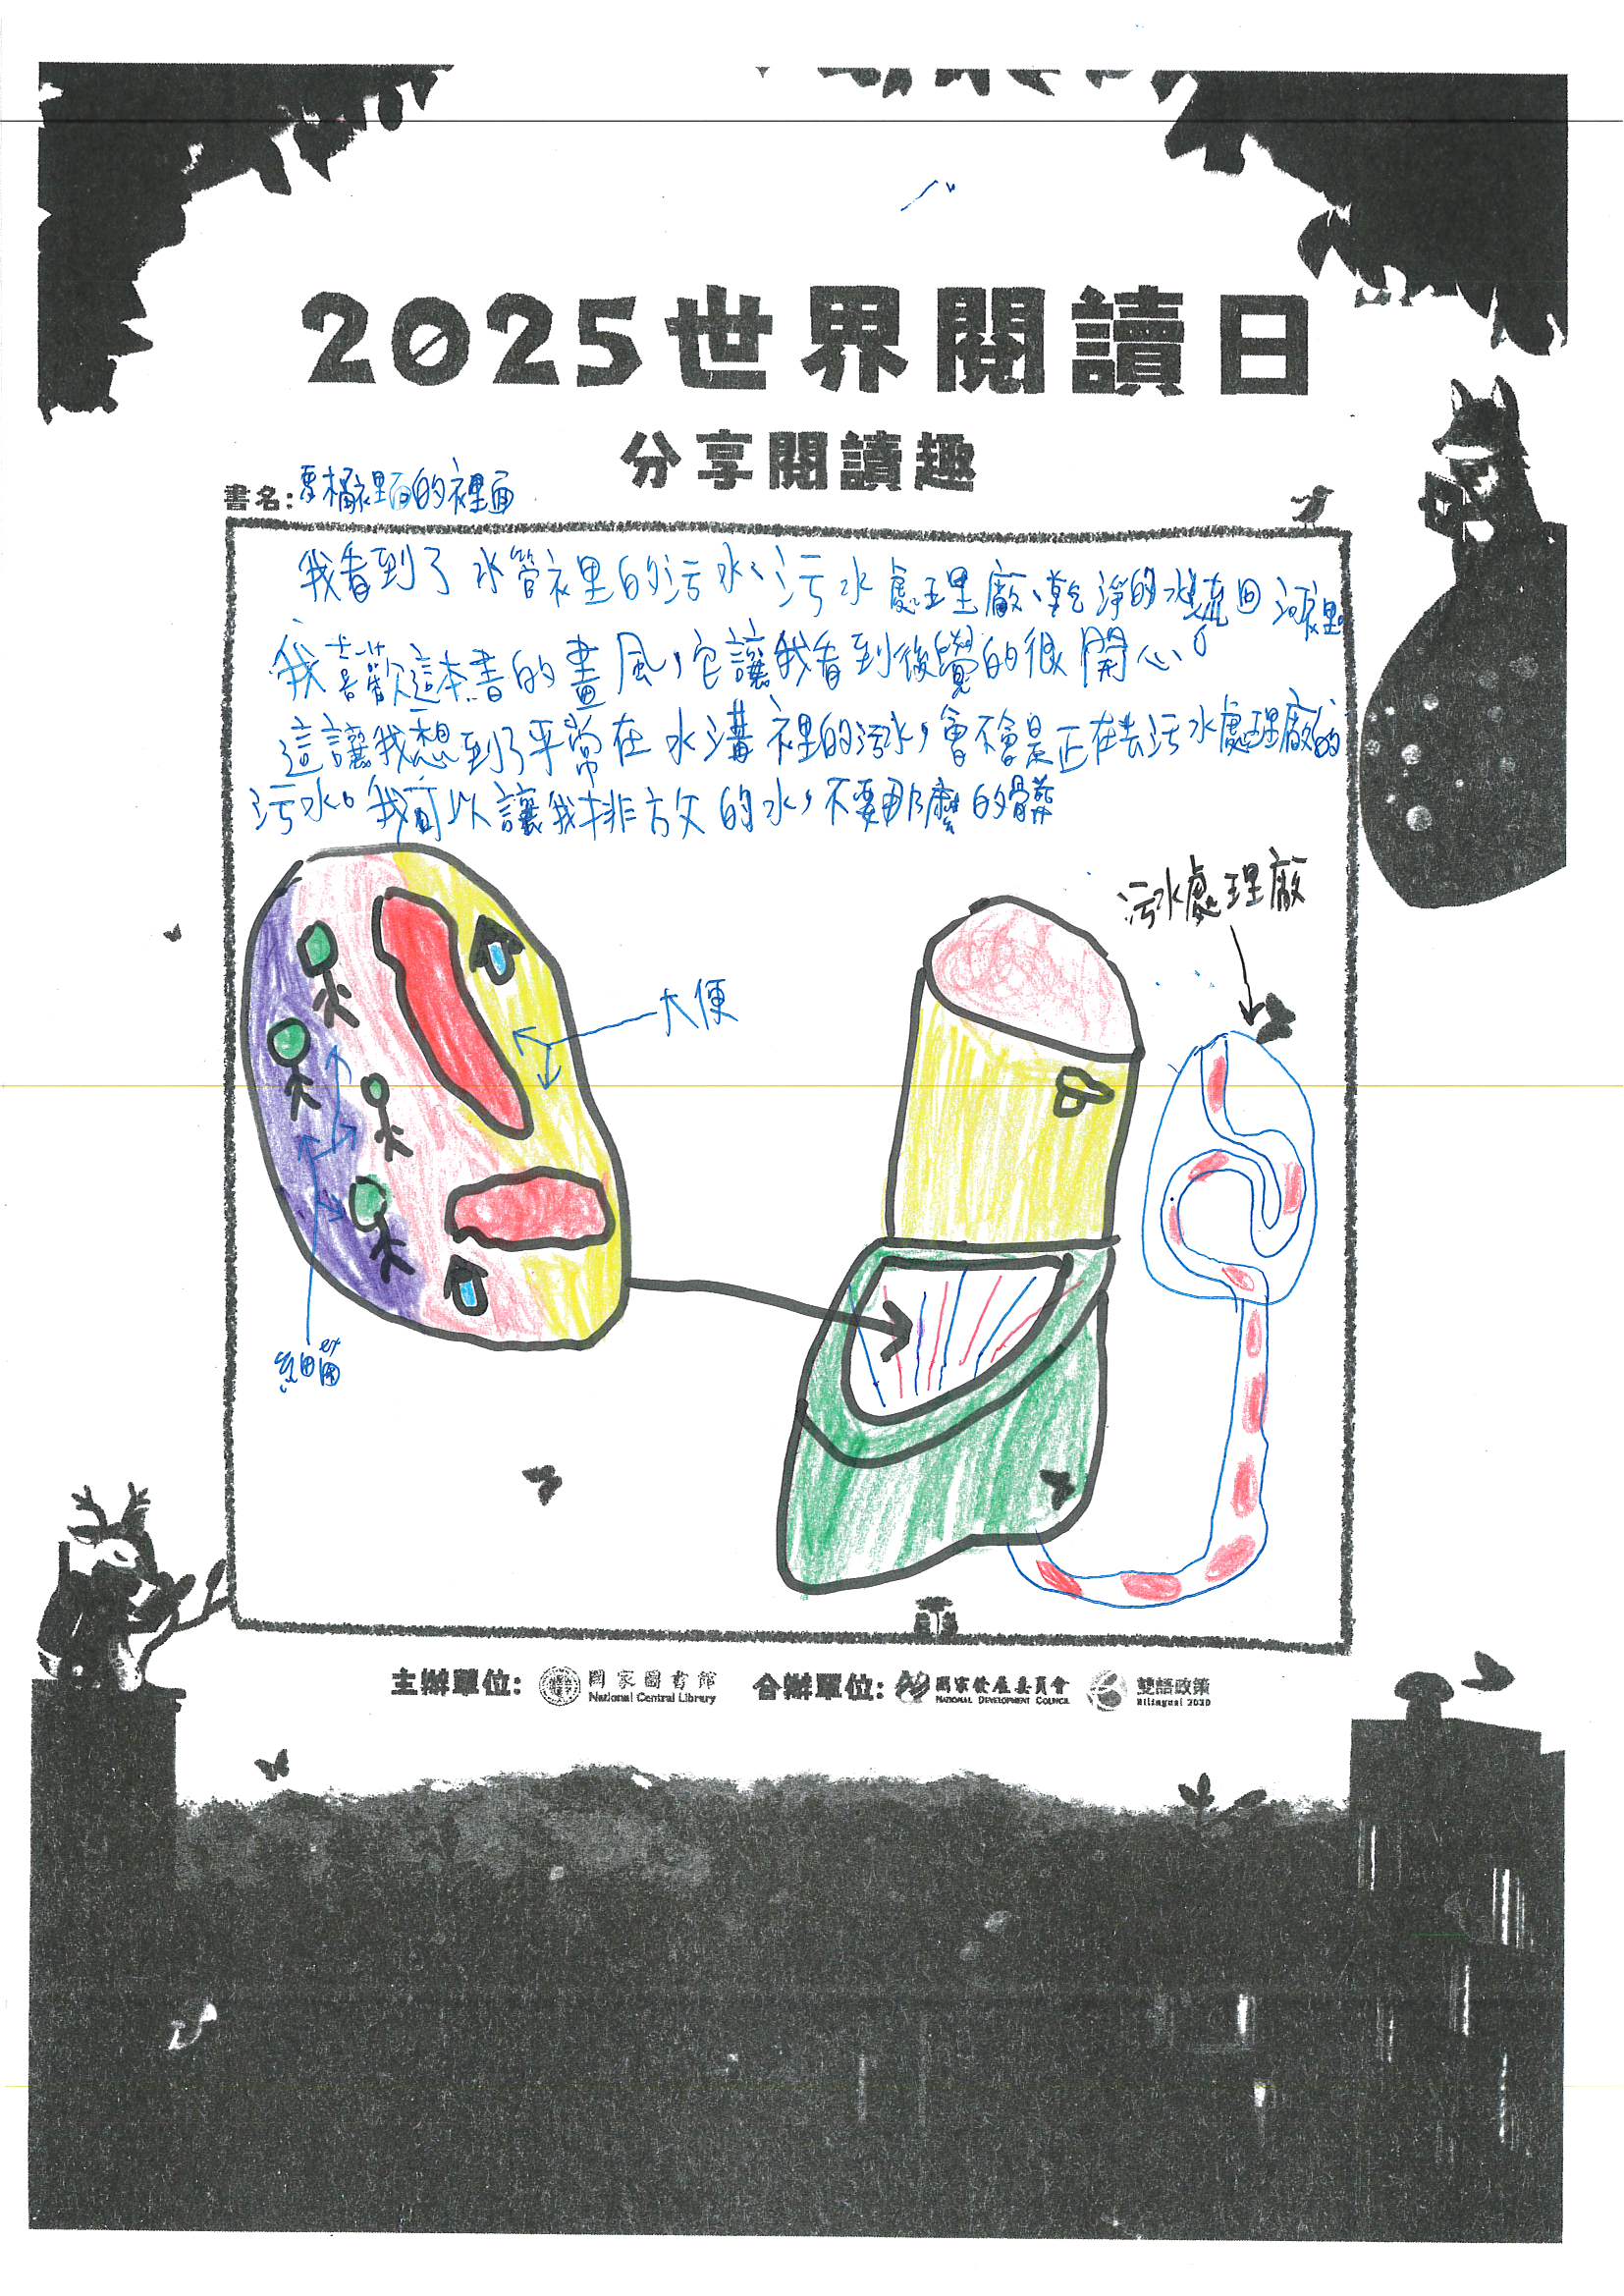 2025世界閱讀日
分享閱讀趣
書名:馬桶裡面的裡面
我看到了水管裡的污水、污水處理廠、乾淨的水流回河裡。
我喜歡這本書的畫風,它讓我看到後覺的很開心。
這讓我想到了平常在水溝裡的污水,會不會是正在去污水處理廠的
污水。我可以讓我排放的水,不要那麼的髒
污水處理廠
大便
細菌
主辦單位: 國家圖書館 National Central Library 合辦單位: 國家發展委員會 NATIONAL DEVELOPMENT COUNCIL 雙語政策 Bilingual 2030